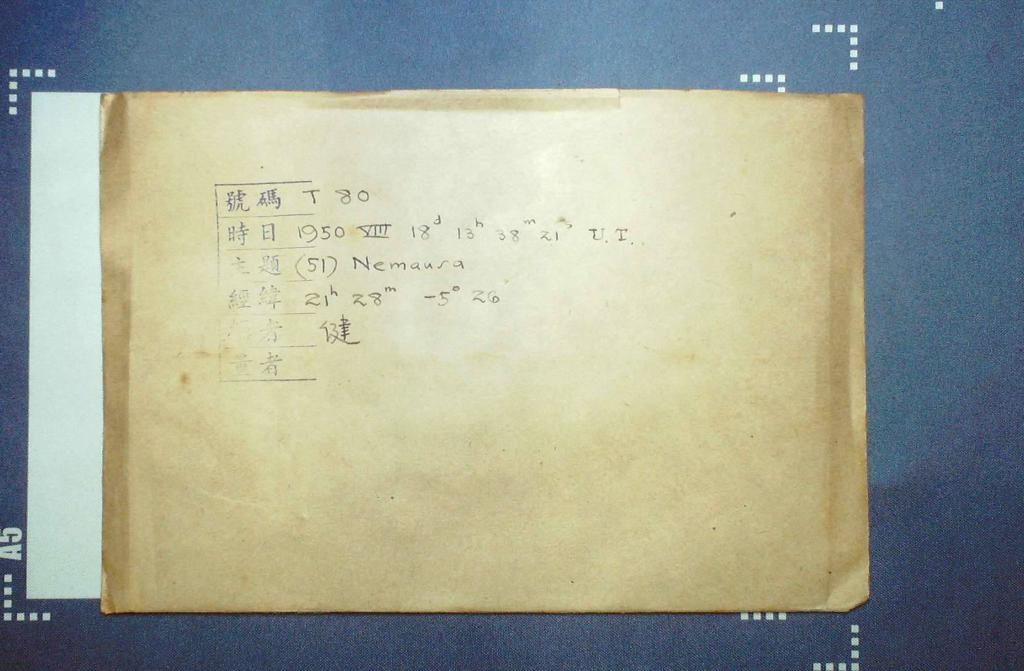 號碼 T 80
時日 1950 VIII 18d 13h 38m 21s U.T.
主題 (51) Nemausa
經緯 21h 28m -5° 26
者 健
量者
A5